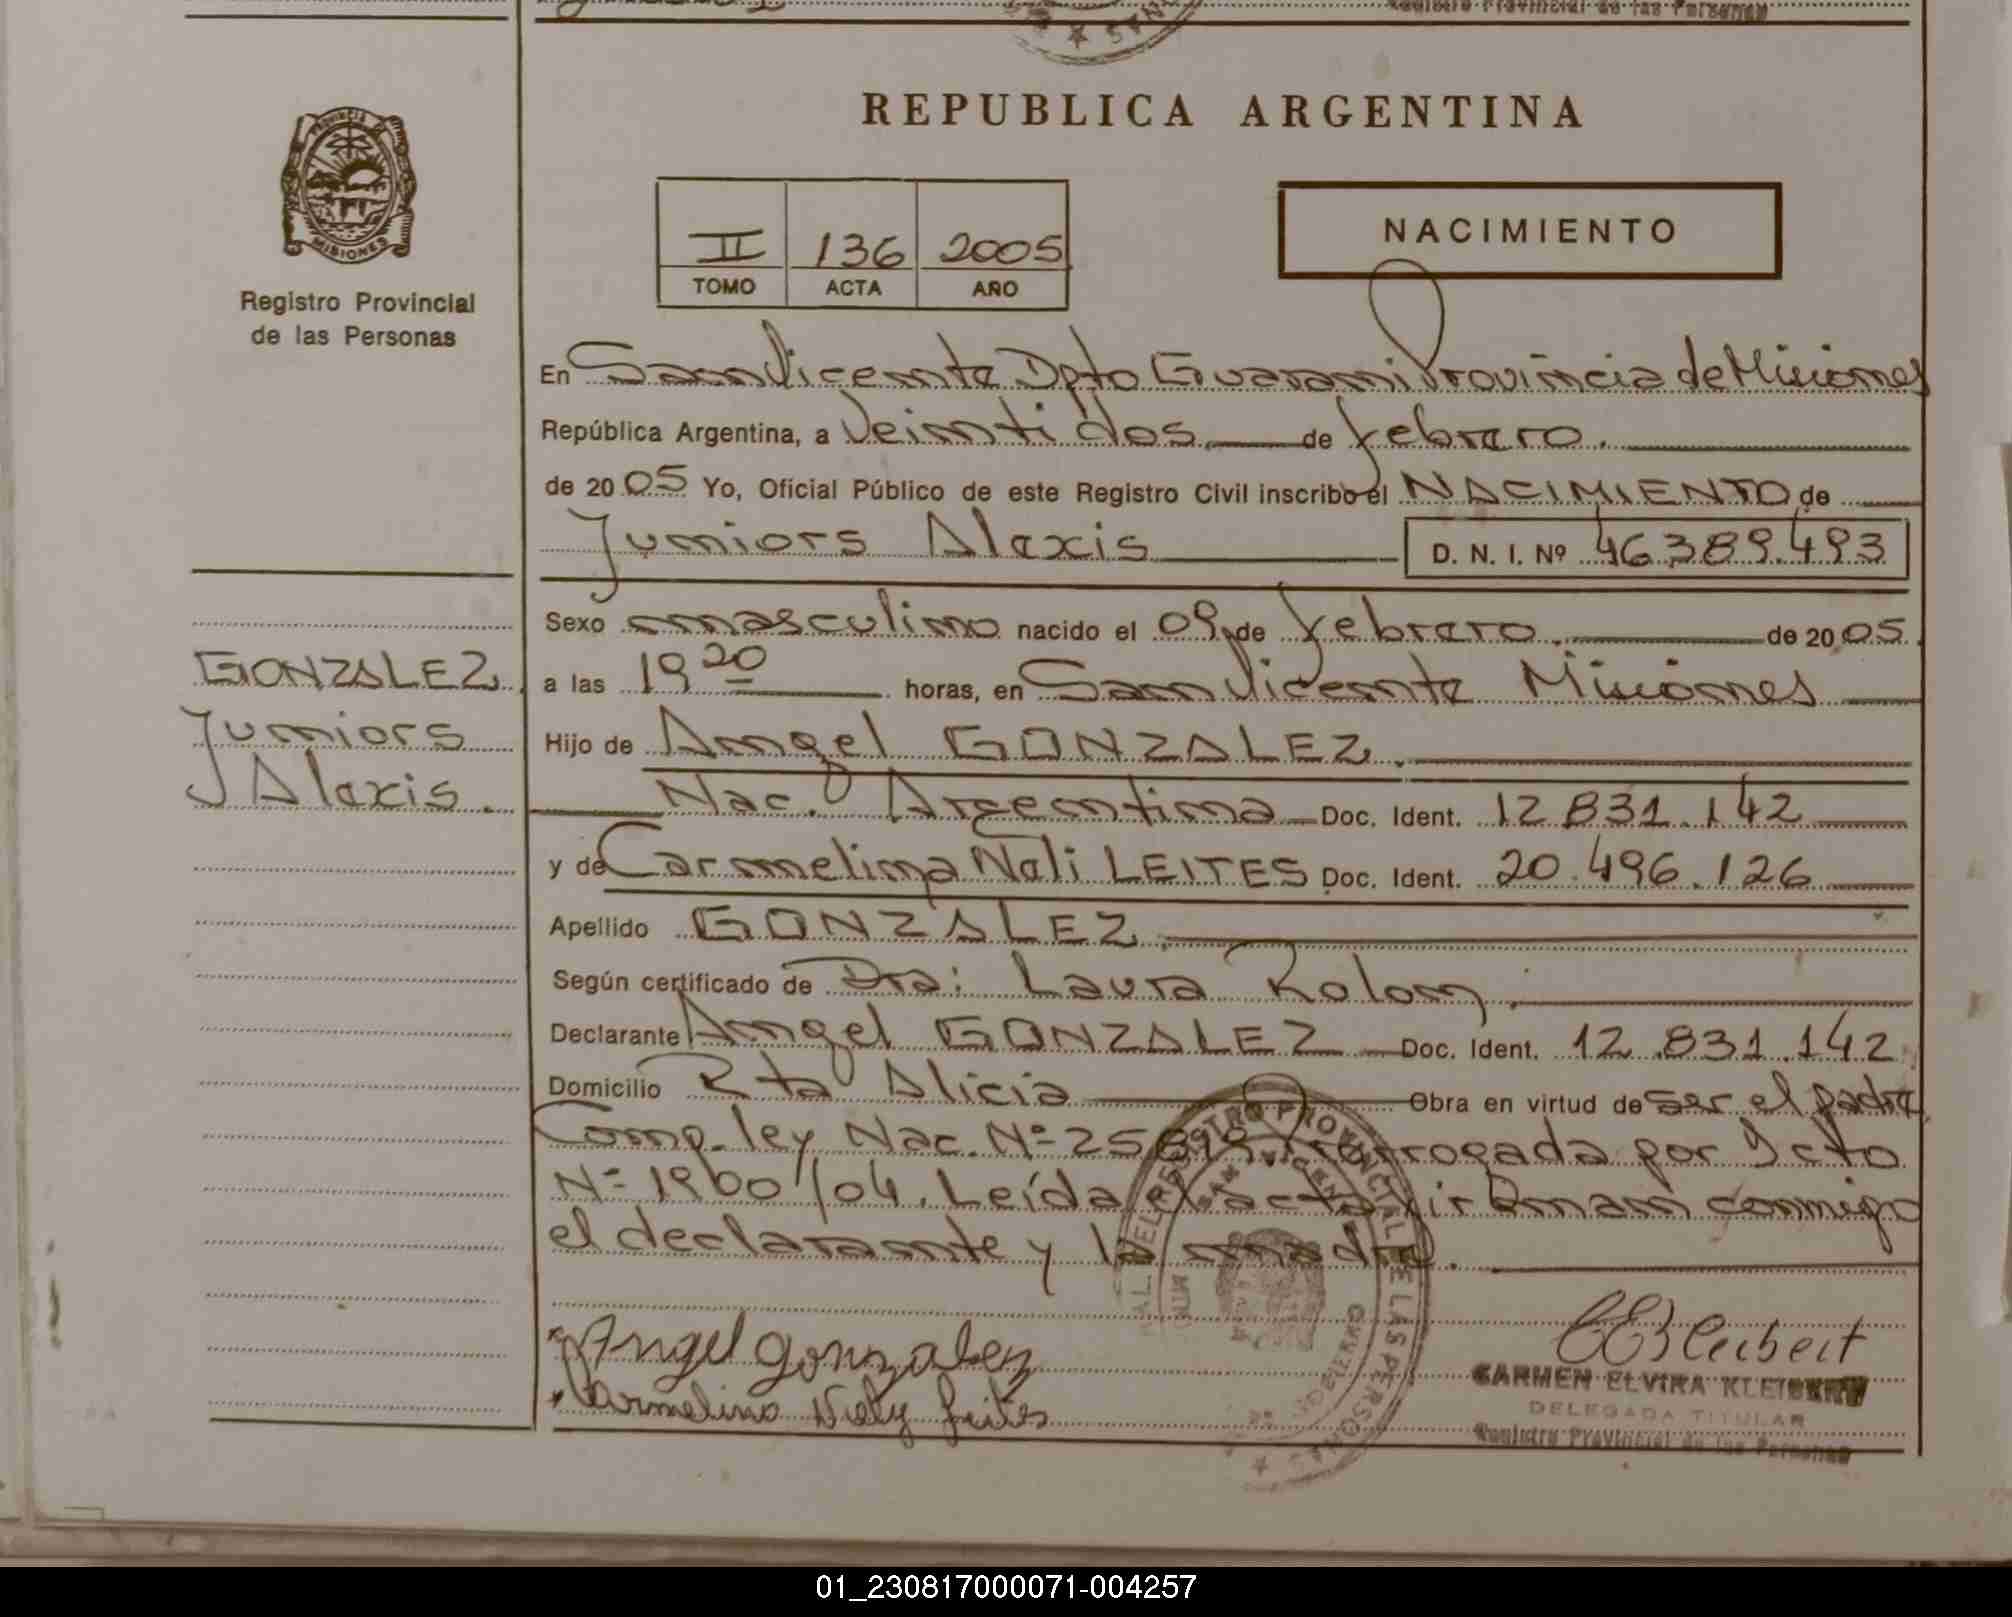 Registro Provincial de las Personas
REPUBLICA ARGENTINA
PROVINCIA DE
MISIONES
Registro Provincial
de las Personas
II 136 2005
TOMO ACTA AÑO
NACIMIENTO
En San Vicente Dpto Guarani Provincia de Misiones
República Argentina, a Veinti dos de febrero.
de 2005 Yo, Oficial Público de este Registro Civil inscribo el NACIMIENTO de
Juniors Alexis D. N. I. Nº 46.389.493
Sexo masculino nacido el 09 de febrero. de 2005.
a las 19 20 horas, en San Vicente Misiones
Hijo de Angel GONZALEZ.
Nac. Argentina Doc. Ident. 12.831.142
y de Carmelina Neli LEITES Doc. Ident. 20.496.126
Apellido GONZALEZ.
Según certificado de Dra: Laura Rolon.
Declarante Angel GONZALEZ Doc. Ident. 12.831.142
Domicilio Rta Alicia Obra en virtud de ser el padre
Comp. ley Nac. Nº 25819 Prorrogada por Dcto
Nº 1960/04. Leída el acta firman conmigo
el declarante y la madre.
GONZALEZ.
Juniors
Alexis.
Angel gonzalez
Carmelina Nely Leites
REGISTRO PROVINCIAL DE LAS PERSONAS
SAN VICENTE
CEKleibert
CARMEN ELVIRA KLEIBERT
DELEGADA TITULAR
Registro Provincial de las Personas
01_230817000071-004257